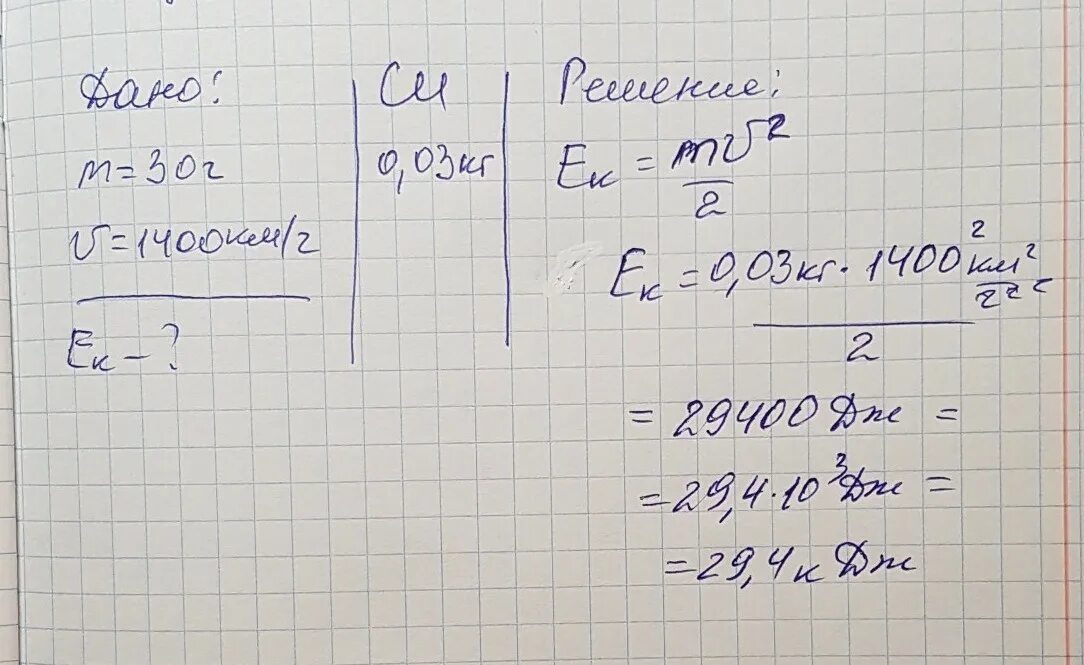 Дано:
m = 30г
υ = 1400км/г
Eк – ?
СИ
0,03кг
Решение:
Eк = mυ²
2
Eк = 0,03кг · 1400² км²
2
= 29400 Дж =
= 29,4 · 10³ Дж =
= 29,4 к Дж